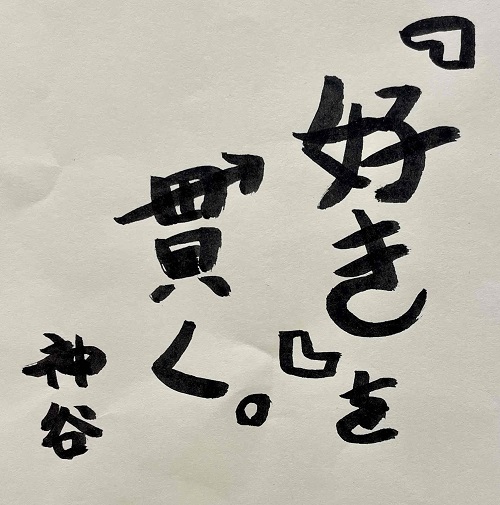 『好き』を
貫く。
神谷